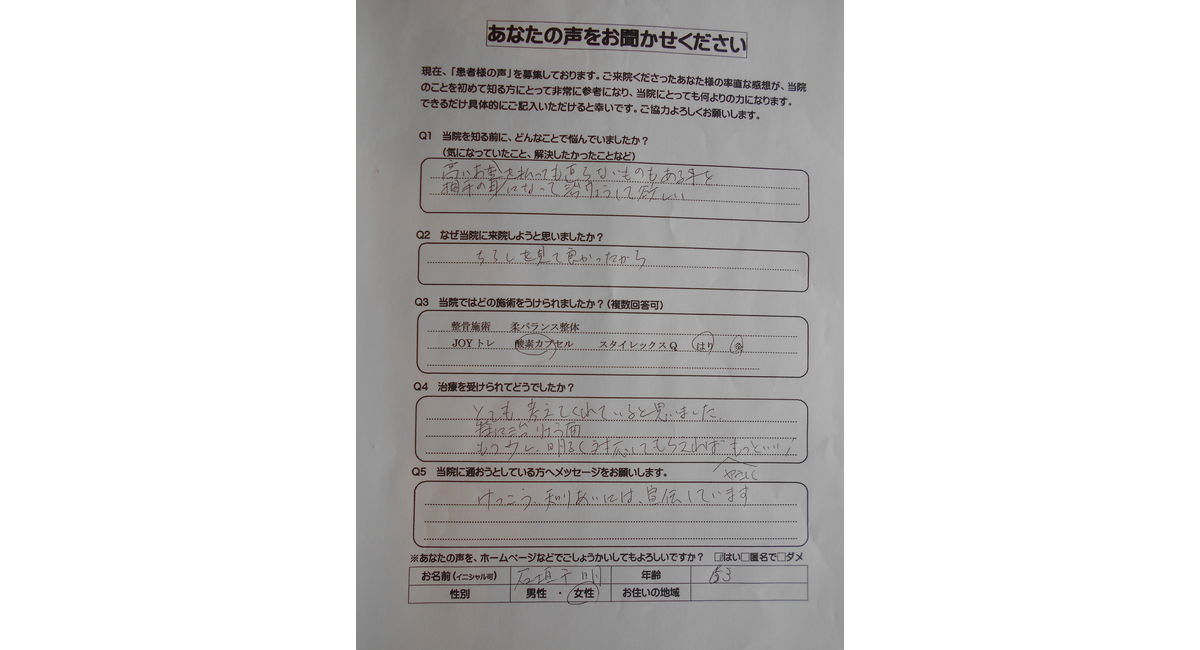 あなたの声をお聞かせください
現在、「患者様の声」を募集しております。ご来院くださったあなた様の率直な感想が、当院
のことを初めて知る方にとって非常に参考になり、当院にとっても何よりの力になります。
できるだけ具体的にご記入いただけると幸いです。ご協力よろしくお願いします。
Q1 当院を知る前に、どんなことで悩んでいましたか?
(気になっていたこと、解決したかったことなど)
高いお金を払っても直らないものもある事を
相手の身になって治りょうして欲しい
Q2 なぜ当院に来院しようと思いましたか?
ちらしを見て良かったから
Q3 当院ではどの施術をうけられましたか?(複数回答可)
整骨施術 柔バランス整体
JOYトレ 酸素カプセル スタイレックスQ はり 灸
Q4 治療を受けられてどうでしたか?
とても、考えてくれていると思いました。
特に治りょう面
もう少し、明るく対応してもらえればもっといい!
Q5 当院に通おうとしている方へメッセージをお願いします。
けっこう、知りあいには、宣伝しています
※あなたの声を、ホームページなどでごしょうかいしてもよろしいですか? □はい□匿名で□ダメ
お名前(イニシャル可) 石垣 年齢 63
性別 男性 ・ 女性 お住いの地域